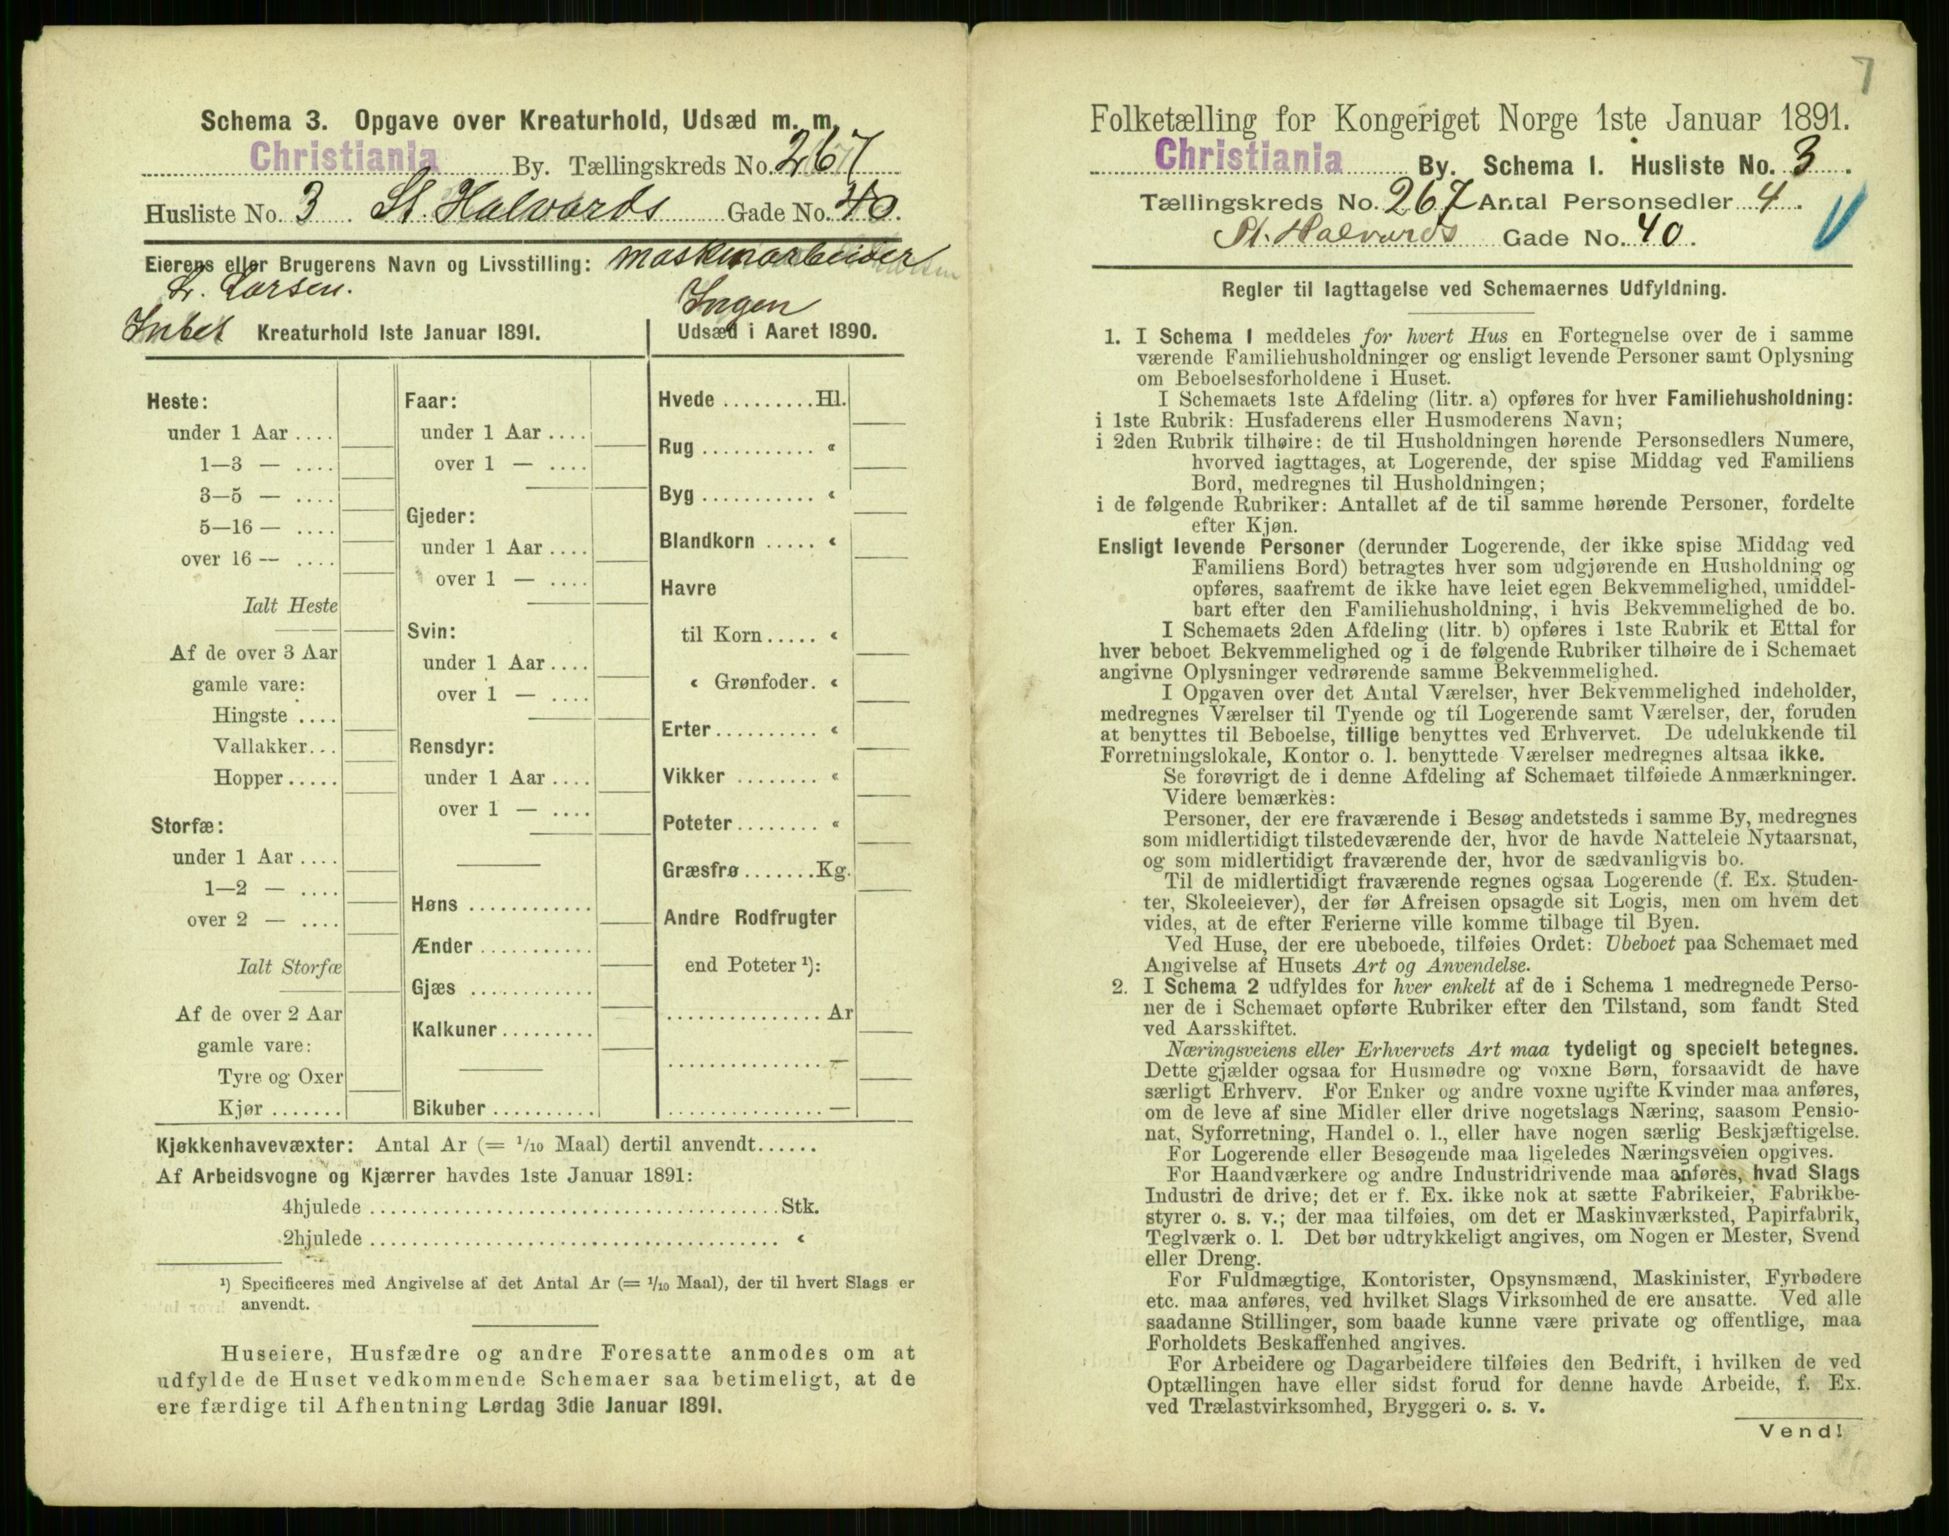 Schema 3. Opgave over Kreaturhold, Udsæd m. m.
Christiania By. Tællingskreds No. 267
Husliste No. 3 St. Halvards Gade No. 40.
Eierens eller Brugerens Navn og Livsstilling: maskinarbeider
L. Larsen.
Intet Kreaturhold 1ste Januar 1891.
Heste:
under 1 Aar ....
1—3 — ....
3—5 — ....
5—16 — ....
over 16 — ....
Ialt Heste
Af de over 3 Aar
gamle vare:
Hingste ....
Vallakker...
Hopper .....
Storfæ:
under 1 Aar ....
1—2 — ....
over 2 — ....
Ialt Storfæ
Af de over 2 Aar
gamle vare:
Tyre og Oxer
Kjør .......
Faar:
under 1 Aar ....
over 1 — ....
Gjeder:
under 1 Aar ....
over 1 — ....
Svin:
under 1 Aar ....
over 1 — ....
Rensdyr:
under 1 Aar ....
over 1 — ....
Høns ............
Ænder ...........
Gjæs ............
Kalkuner.........
Bikuber ..........
Ingen
Udsæd i Aaret 1890.
Hvede .........Hl.
Rug ........... «
Byg ........... «
Blandkorn ..... «
Havre
til Korn ..... «
« Grønfoder. «
Erter.......... «
Vikker ........ «
Poteter........ «
Græsfrø.......Kg.
Andre Rodfrugter
end Poteter ¹):
............... Ar
............... —
............... —
Kjøkkenhavevæxter: Antal Ar (= 1/10 Maal) dertil anvendt......
Af Arbeidsvogne og Kjærrer havdes 1ste Januar 1891:
4hjulede ..................................... Stk.
2hjulede ..................................... «
¹) Specificeres med Angivelse af det Antal Ar (= 1/10 Maal), der til hvert Slags er
anvendt.
Huseiere, Husfædre og andre Foresatte anmodes om at
udfylde de Huset vedkommende Schemaer saa betimeligt, at de
ere færdige til Afhentning Lørdag 3die Januar 1891.
7
Folketælling for Kongeriget Norge 1ste Januar 1891.
Christiania By. Schema 1. Husliste No. 3.
Tællingskreds No. 267 Antal Personsedler 4.
St. Halvards Gade No. 40.
Regler til Iagttagelse ved Schemaernes Udfyldning.
1. I Schema 1 meddeles for hvert Hus en Fortegnelse over de i samme
værende Familiehusholdninger og ensligt levende Personer samt Oplysning
om Beboelsesforholdene i Huset.
I Schemaets 1ste Afdeling (litr. a) opføres for hver Familiehusholdning:
i 1ste Rubrik: Husfaderens eller Husmoderens Navn;
i 2den Rubrik tilhøire: de til Husholdningen hørende Personsedlers Numere,
hvorved iagttages, at Logerende, der spise Middag ved Familiens
Bord, medregnes til Husholdningen;
i de følgende Rubriker: Antallet af de til samme hørende Personer, fordelte
efter Kjøn.
Ensligt levende Personer (derunder Logerende, der ikke spise Middag ved
Familiens Bord) betragtes hver som udgjørende en Husholdning og
opføres, saafremt de ikke have leiet egen Bekvemmelighed, umiddel-
bart efter den Familiehusholdning, i hvis Bekvemmelighed de bo.
I Schemaets 2den Afdeling (litr. b) opføres i 1ste Rubrik et Ettal for
hver beboet Bekvemmelighed og i de følgende Rubriker tilhøire de i Schemaet
angivne Oplysninger vedrørende samme Bekvemmelighed.
I Opgaven over det Antal Værelser, hver Bekvemmelighed indeholder,
medregnes Værelser til Tyende og til Logerende samt Værelser, der, foruden
at benyttes til Beboelse, tillige benyttes ved Erhvervet. De udelukkende til
Forretningslokale, Kontor o. l. benyttede Værelser medregnes altsaa ikke.
Se forøvrigt de i denne Afdeling af Schemaet tilføiede Anmærkninger.
Videre bemærkes:
Personer, der ere fraværende i Besøg andetsteds i samme By, medregnes
som midlertidigt tilstedeværende der, hvor de havde Natteleie Nytaarsnat,
og som midlertidigt fraværende der, hvor de sædvanligvis bo.
Til de midlertidigt fraværende regnes ogsaa Logerende (f. Ex. Studen-
ter, Skoleeiever), der før Afreisen opsagde sit Logis, men om hvem det
vides, at de efter Ferierne ville komme tilbage til Byen.
Ved Huse, der ere ubeboede, tilføies Ordet: Ubeboet paa Schemaet med
Angivelse af Husets Art og Anvendelse.
2. I Schema 2 udfyldes for hver enkelt af de i Schema 1 medregnede Perso-
ner de i Schemaet opførte Rubriker efter den Tilstand, som fandt Sted
ved Aarsskiftet.
Næringsveiens eller Erhvervets Art maa tydeligt og specielt betegnes.
Dette gjælder ogsaa for Husmødre og voxne Børn, forsaavidt de have
særligt Erhverv. For Enker og andre voxne ugifte Kvinder maa anføres,
om de leve af sine Midler eller drive nogetslags Næring, saasom Pensio-
nat, Syforretning, Handel o. l., eller have nogen særlig Beskjæftigelse.
For Logerende eller Besøgende maa ligeledes Næringsveien opgives.
For Haandværkere og andre Industridrivende maa anføres, hvad Slags
Industri de drive; det er f. Ex. ikke nok at sætte Fabrikeier, Fabrikbe-
styrer o. s. v.; der maa tilføies, om det er Maskinværksted, Papirfabrik,
Teglværk o. l. Det bør udtrykkeligt angives, om Nogen er Mester, Svend
eller Dreng.
For Fuldmægtige, Kontorister, Opsynsmænd, Maskinister, Fyrbødere
etc. maa anføres, ved hvilket Slags Virksomhed de ere ansatte. Ved alle
saadanne Stillinger, som baade kunne være private og offentlige, maa
Forholdets Beskaffenhed angives.
For Arbeidere og Dagarbeidere tilføies den Bedrift, i hvilken de ved
Optællingen have eller sidst forud for denne havde Arbeide, f. Ex.
ved Trælastvirksomhed, Bryggeri o. s. v.
Vend!